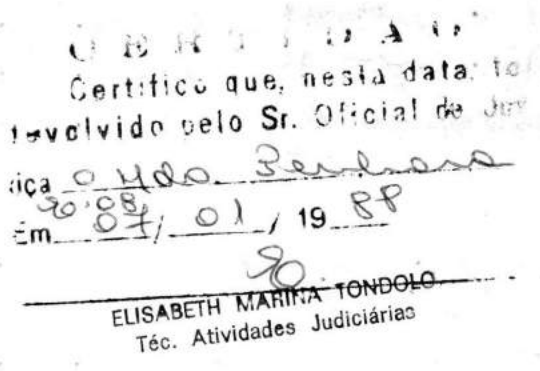 CERTIDÃO
Certifico que, nesta data, fo
devolvido pelo Sr. Oficial de Jus
tiça o Mdo.
Em 07/ 01 / 19 88
ELISABETH MARINA TONDOLO
Téc. Atividades Judiciárias